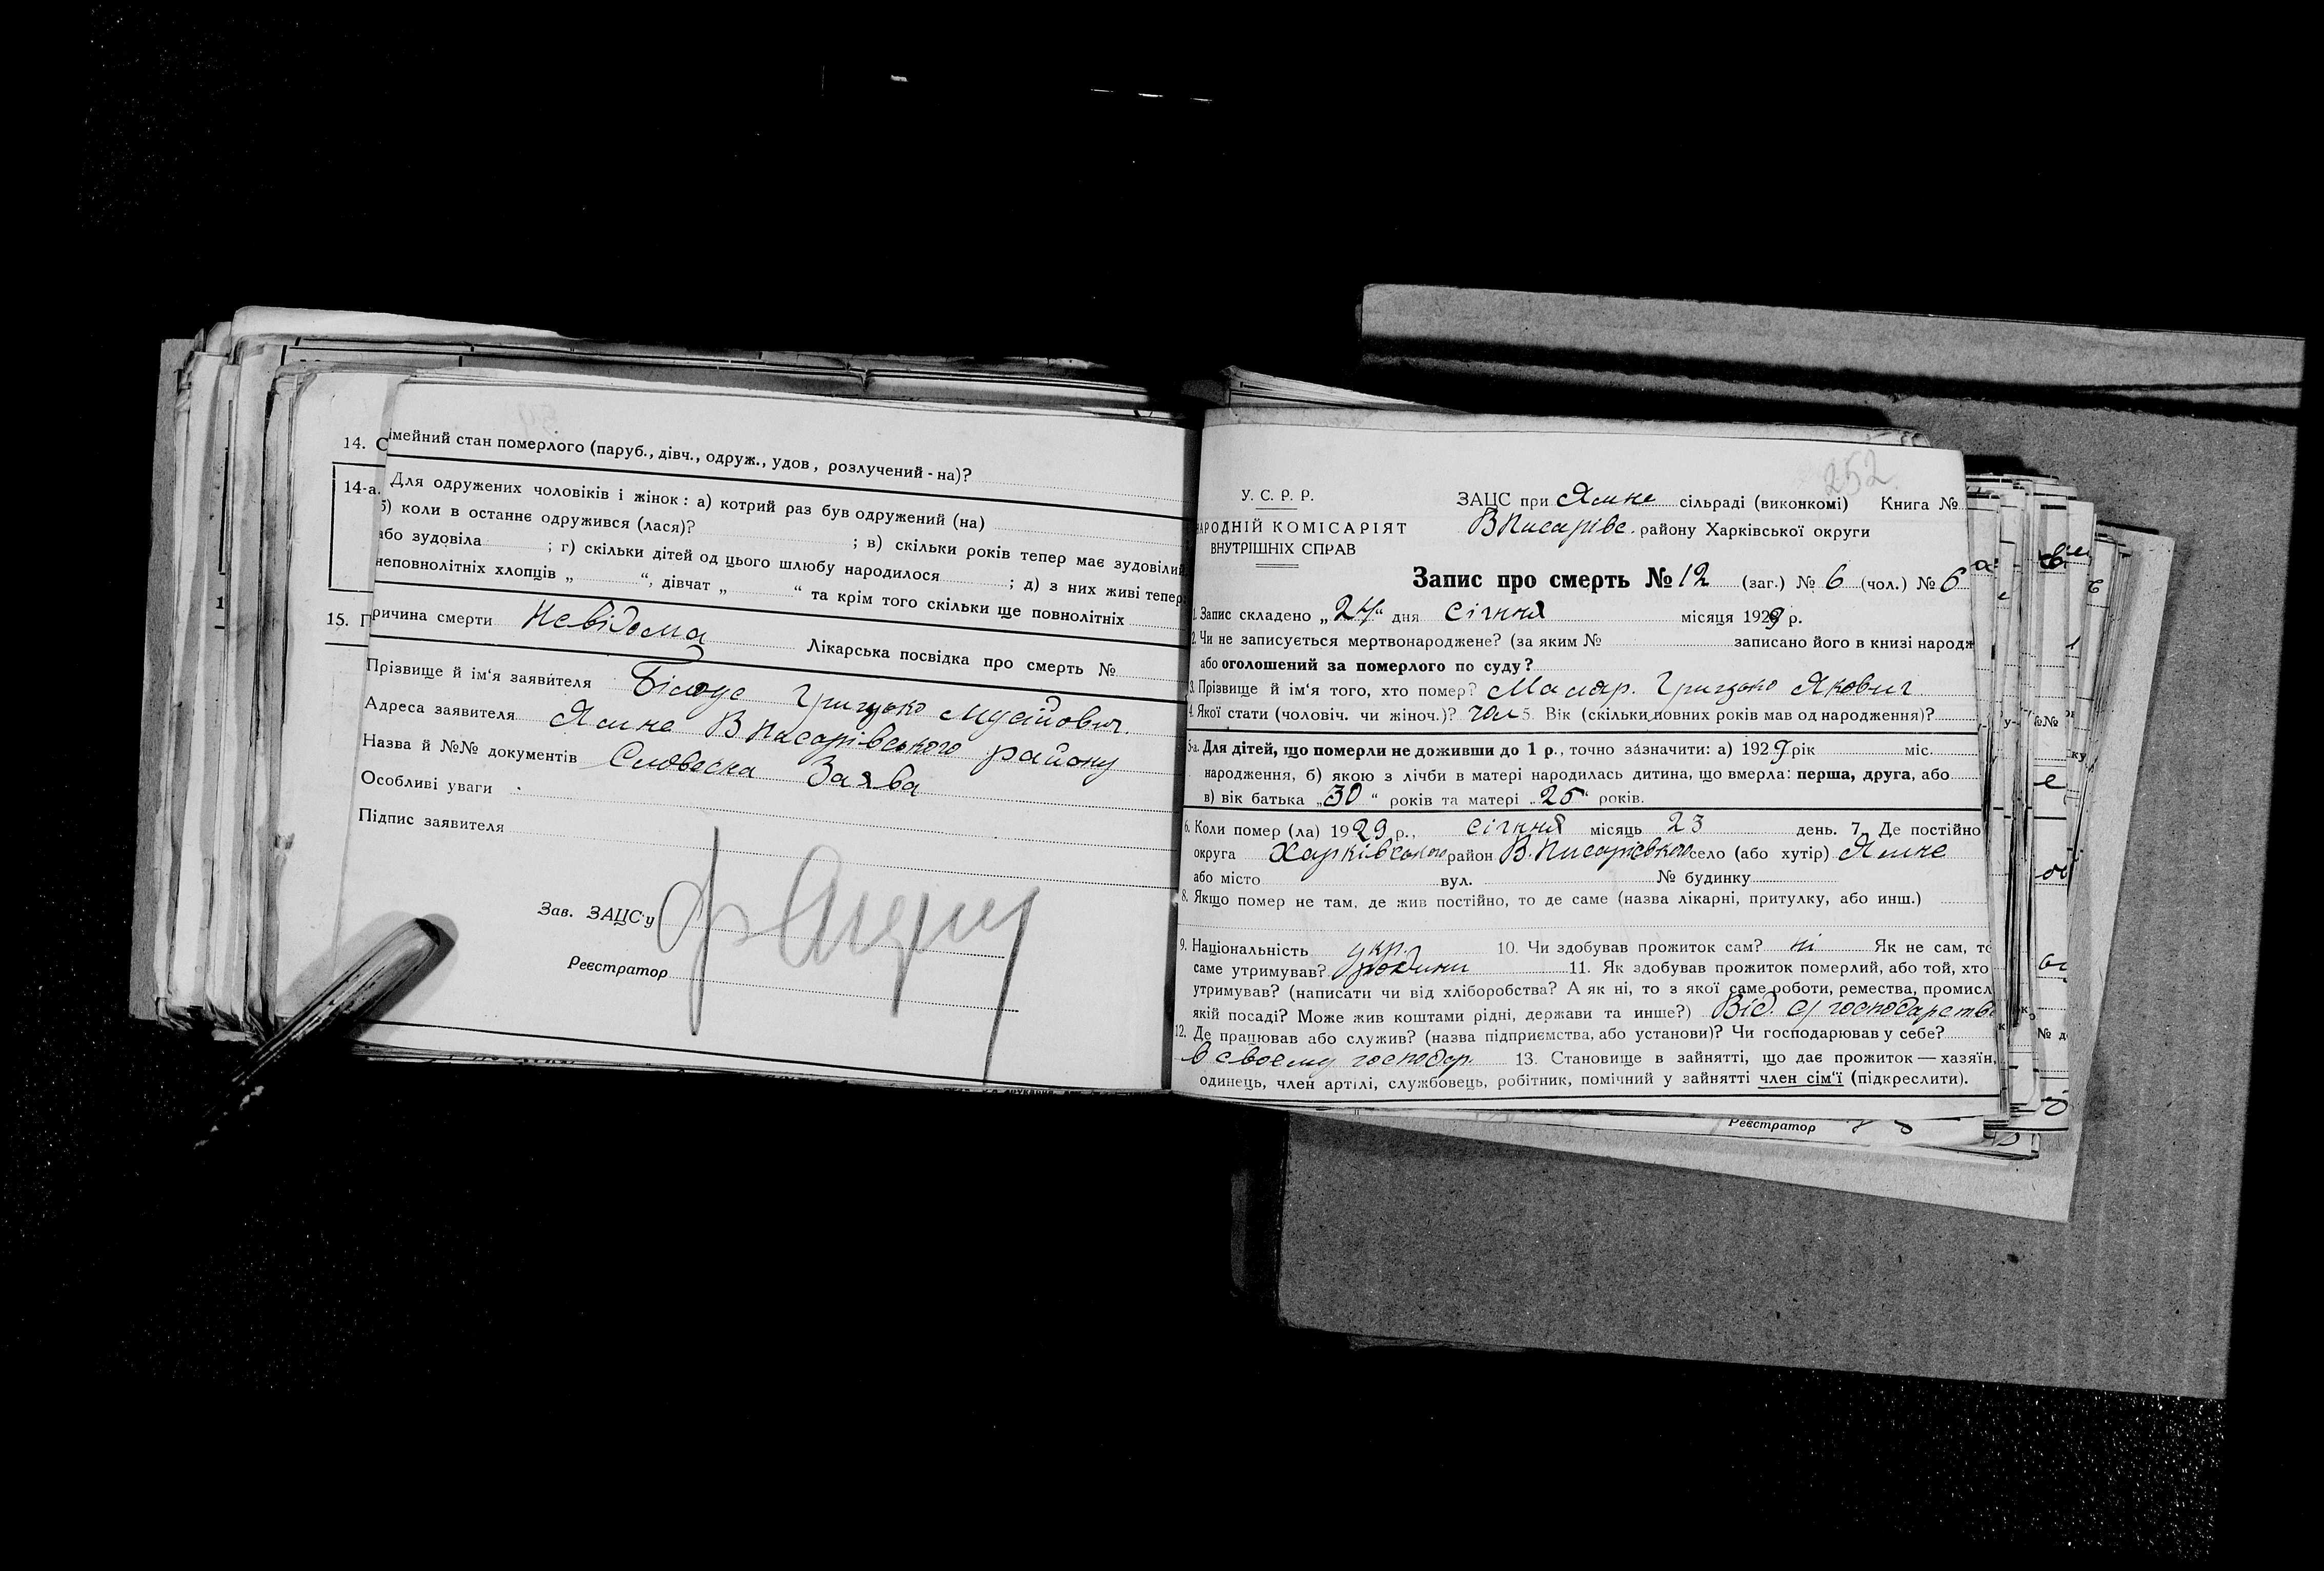 14. С
імейний стан померлого (паруб., дівч., одруж., удов, розлучений-на)?
14-а.
Для одружених чоловіків і жінок: а) котрий раз був одружений (на)
б) коли в останнє одружився (лася)? ; в) скільки років тепер має зудовілий
або зудовіла ; г) скільки дітей од цього шлюбу народилося ; д) з них живі тепер:
неповнолітніх хлопців „ “, дівчат „ “ та крім того скільки ще повнолітніх
15. П
ричина смерти Невідома Лікарська посвідка про смерть №
Прізвище й ім'я заявителя Білоус Грицько
Адреса заявителя Ямне В Писарівського району
Назва й №№ документів Словесна Заява
Особливі уваги
Підпис заявителя
Зав. ЗАЦС'у
Реєстратор
252
У. С. Р. Р.
НАРОДНІЙ КОМІСАРІЯТ
ВНУТРІШНІХ СПРАВ
ЗАЦС при Ямне сільраді (виконкомі) Книга №
ВПисарівс. району Харківської округи
Запис про смерть № 12 (заг.) № 6 (чол.) № 6
1. Запис складено „24“ дня січня місяця 1929 р.
2. Чи не записується мертвонароджене? (за яким № записано його в книзі народж
або оголошений за померлого по суду?
3. Прізвище й ім'я того, хто помер? Маляр. Грицько Якович
4. Якої стати (чоловіч. чи жіноч.)? чол 5. Вік (скільки повних років мав од народження)?
5-а. Для дітей, що померли не доживши до 1 р., точно зазначити: а) 1929 рік міс.
народження, б) якою з лічби в матері народилась дитина, що вмерла: перша, друга, або
в) вік батька „30“ років та матері „25“ років.
6. Коли помер (ла) 1929 р., січня місяць 23 день. 7. Де постійно
округа Харківського район В. Писарівского село (або хутір) Ямне
або місто вул. № будинку
8. Якщо помер не там, де жив постійно, то де саме (назва лікарні, притулку, або инш.)
9. Національність укр. 10. Чи здобував прожиток сам? ні Як не сам, то
саме утримував? родини 11. Як здобував прожиток померлий, або той, хто
утримував? (написати чи від хліборобства? А як ні, то з якої саме роботи, ремества, промисл
якій посаді? Може жив коштами рідні, держави та инше?) Від с/господарства
12. Де працював або служив? (назва підприємства, або установи)? Чи господарював у себе?
в своему господар. 13. Становище в зайнятті, що дає прожиток — хазяїн,
одинець, член артілі, службовець, робітник, помічний у зайнятті член сім'ї (підкреслити).
Реєстратор